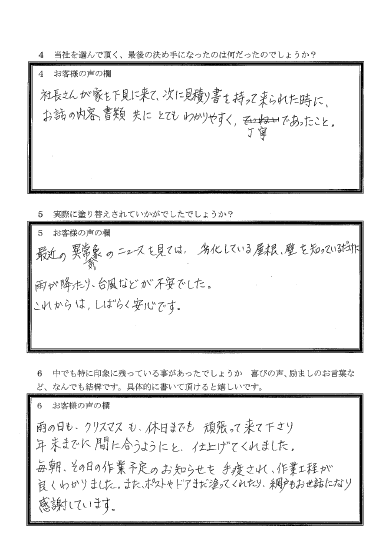 4 当社を選んで頂く、最後の決め手になったのは何だったのでしょうか？
4 お客様の声の欄
社長さんが家を下見に来て、次に見積り書を持って来られた時に、
お話の内容、書類 共に とても わかりやすく、ていねいであったこと。
丁寧
5 実際に塗り替えされていかがでしたでしょうか？
5 お客様の声の欄
最近の 異常象の ニュースを見ては、劣化している屋根、壁を知っているだけに
気
雨が降たり、台風などが不安でした。
これからは、しばらく安心です。
6 中でも特に印象に残っている事があったでしょうか 喜びの声、励ましのお言葉な
ど、なんでも結構です。具体的に書いて頂けると嬉しいです。
6 お客様の声の欄
雨の日も、クリスマスも、休日までも 頑張って来て下さり
年末までに 間に合うようにと、仕上げてくれました。
毎朝、その日の作業予定のお知らせを 手渡され、作業工程が
良くわかりました。また、ポストやドアまで塗ってくれたり、網戸もお世話になり
感謝しています。